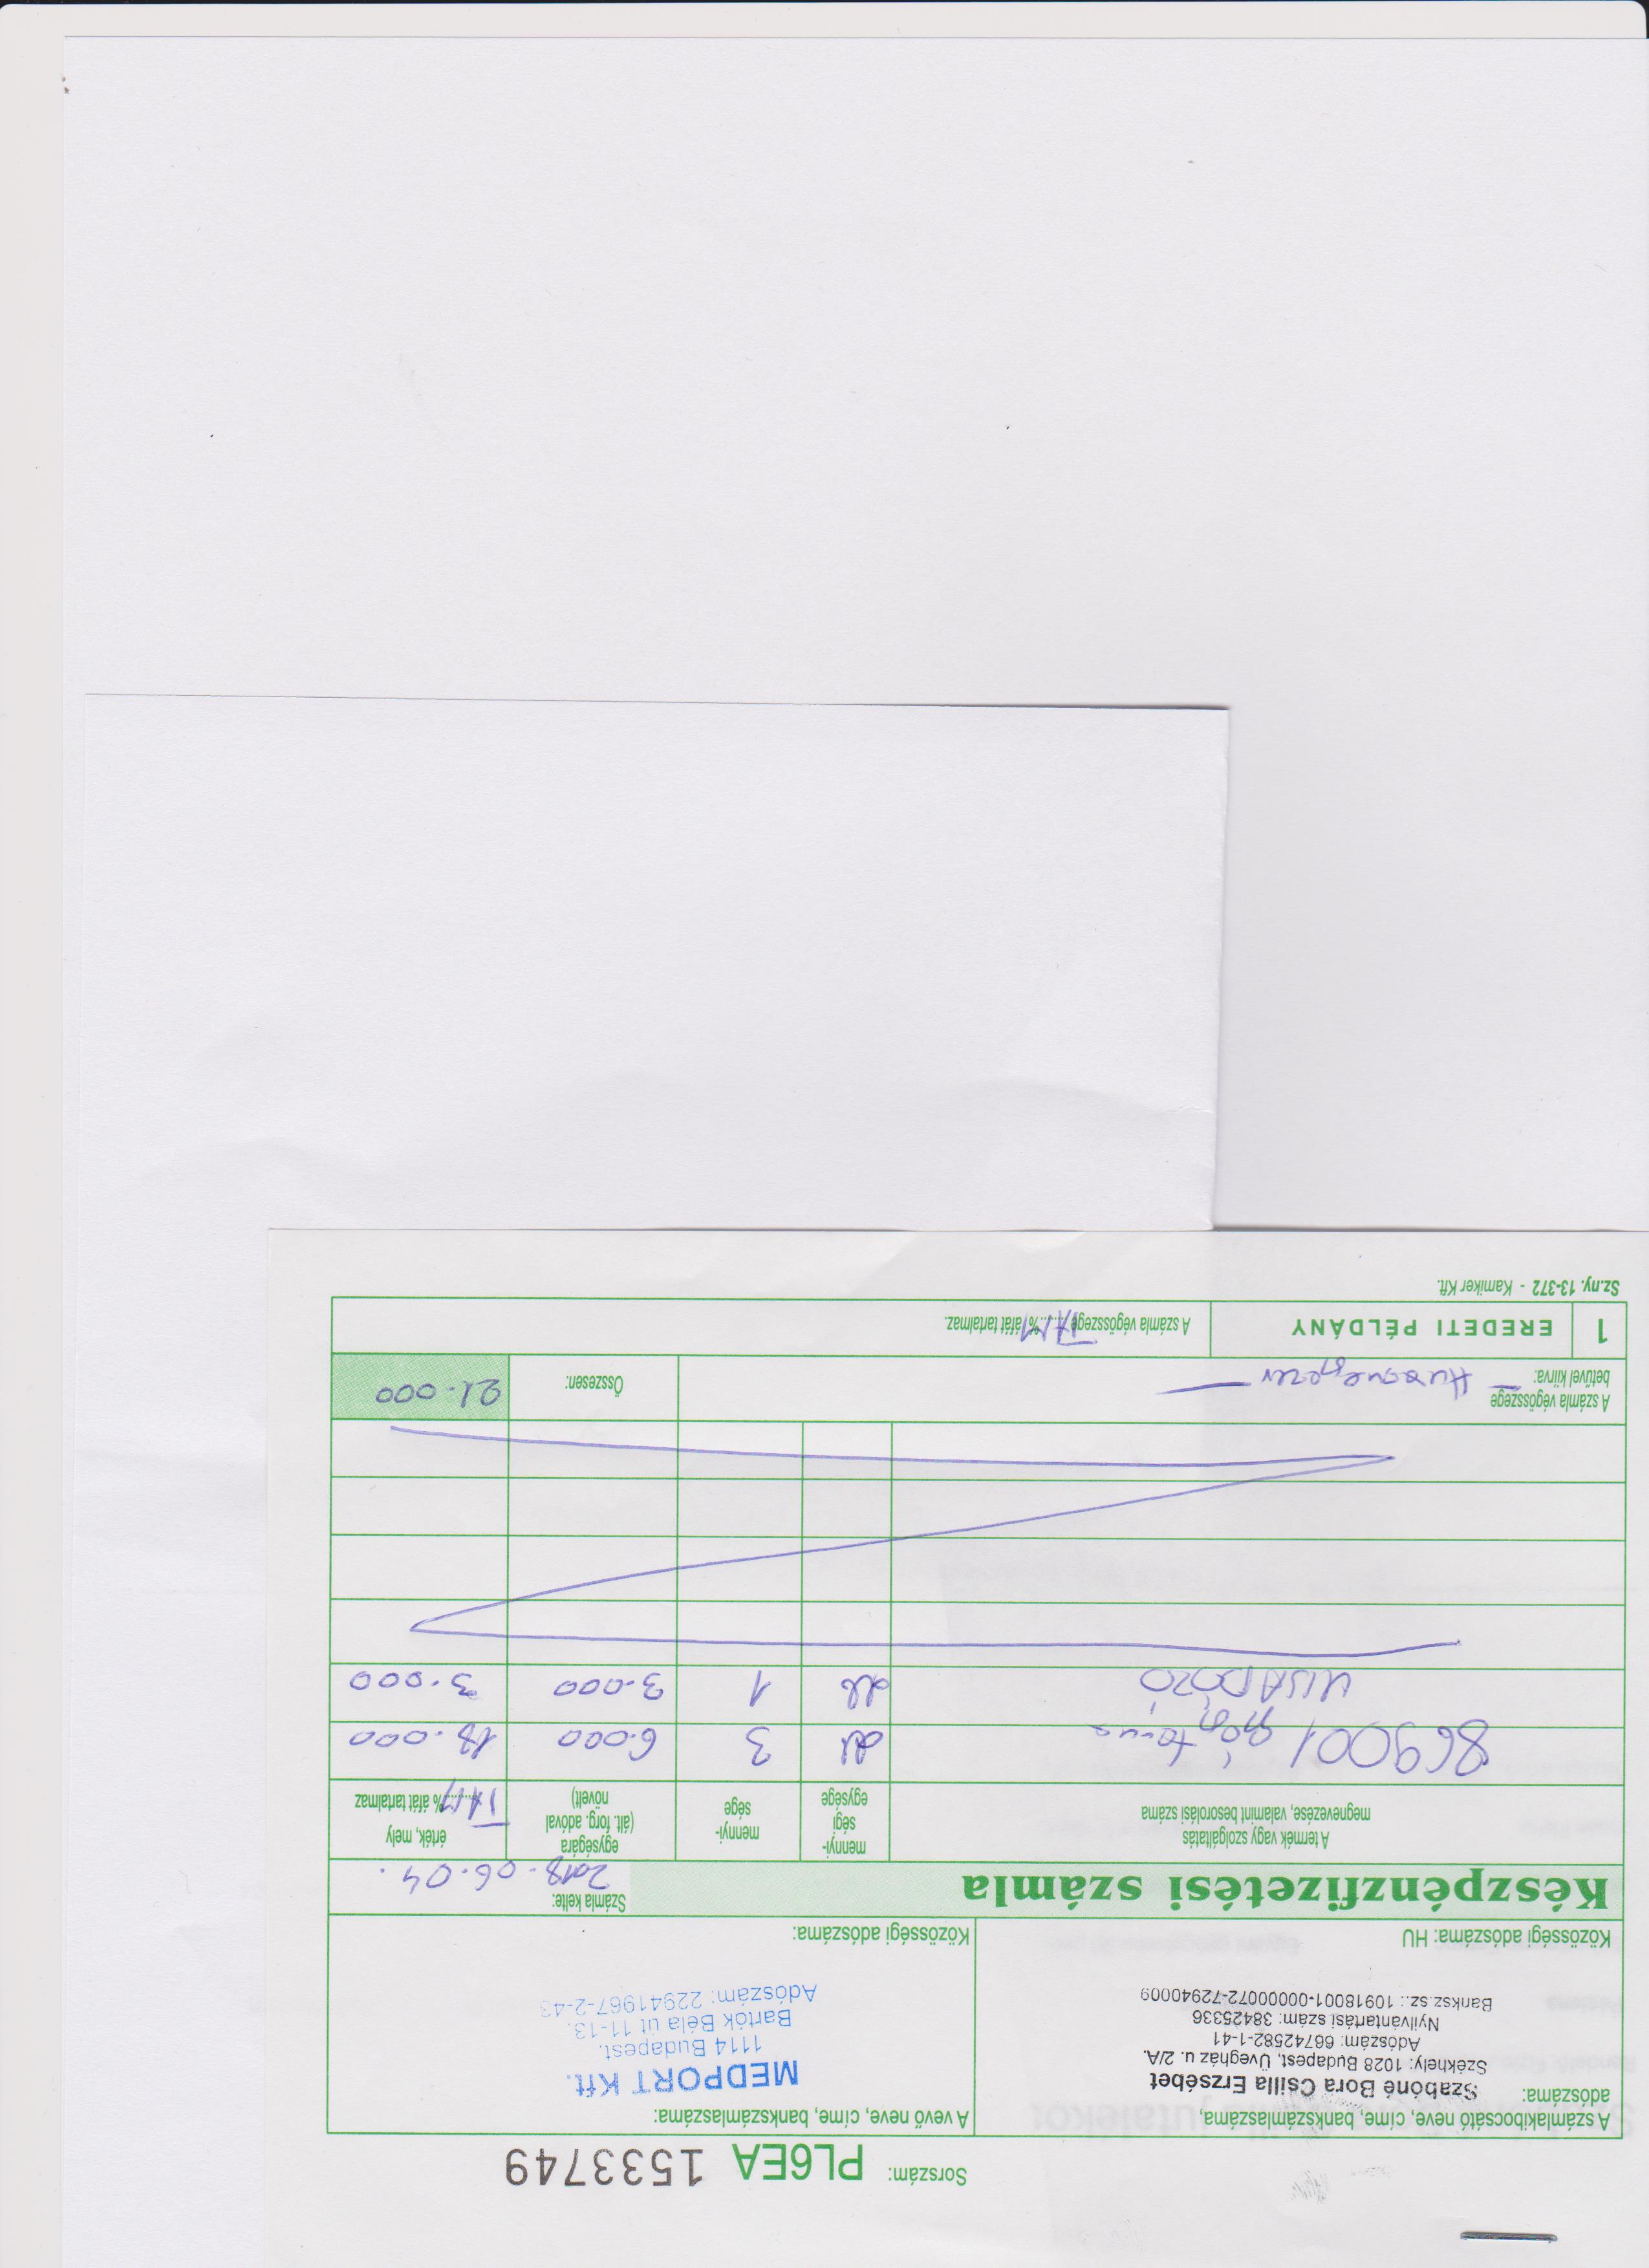 Sorszám: PL6EA 1533749
A számlakibocsátó neve, címe, bankszámlaszáma,
adószáma:
Szabóné Bora Csilla Erzsébet
Székhely: 1028 Budapest, Üvegház u. 2/A.
Adószám: 66742582-1-41
Nyilvántartási szám: 38425336
Banksz.sz.: 10918001-00000072-72940009
Közösségi adószáma: HU
A vevő neve, címe, bankszámlaszáma:
MEDPORT Kft.
1114 Budapest.
Bartók Béla út 11-13.
Adószám: 22941967-2-43
Közösségi adószáma:
Készpénzfizetési számla
Számla kelte:
2018.06.04.
A termék vagy szolgáltatás
megnevezése, valamint besorolási száma
mennyi-
ségi
egysége
mennyi-
sége
egységára
(ált. forg. adóval
növelt)
érték, mely
TAM % áfát tartalmaz
869001 gyógytorna db 3 6.000 18.000
KISADÓZÓ db 1 3.000 3.000
A számla végösszege
betűvel kiírva: - Huszonegyezer -
Összesen: 21.000
1 EREDETI PÉLDÁNY
A számla végösszege TAM % áfát tartalmaz.
Sz.ny. 13-372 - Kamiker Kft.